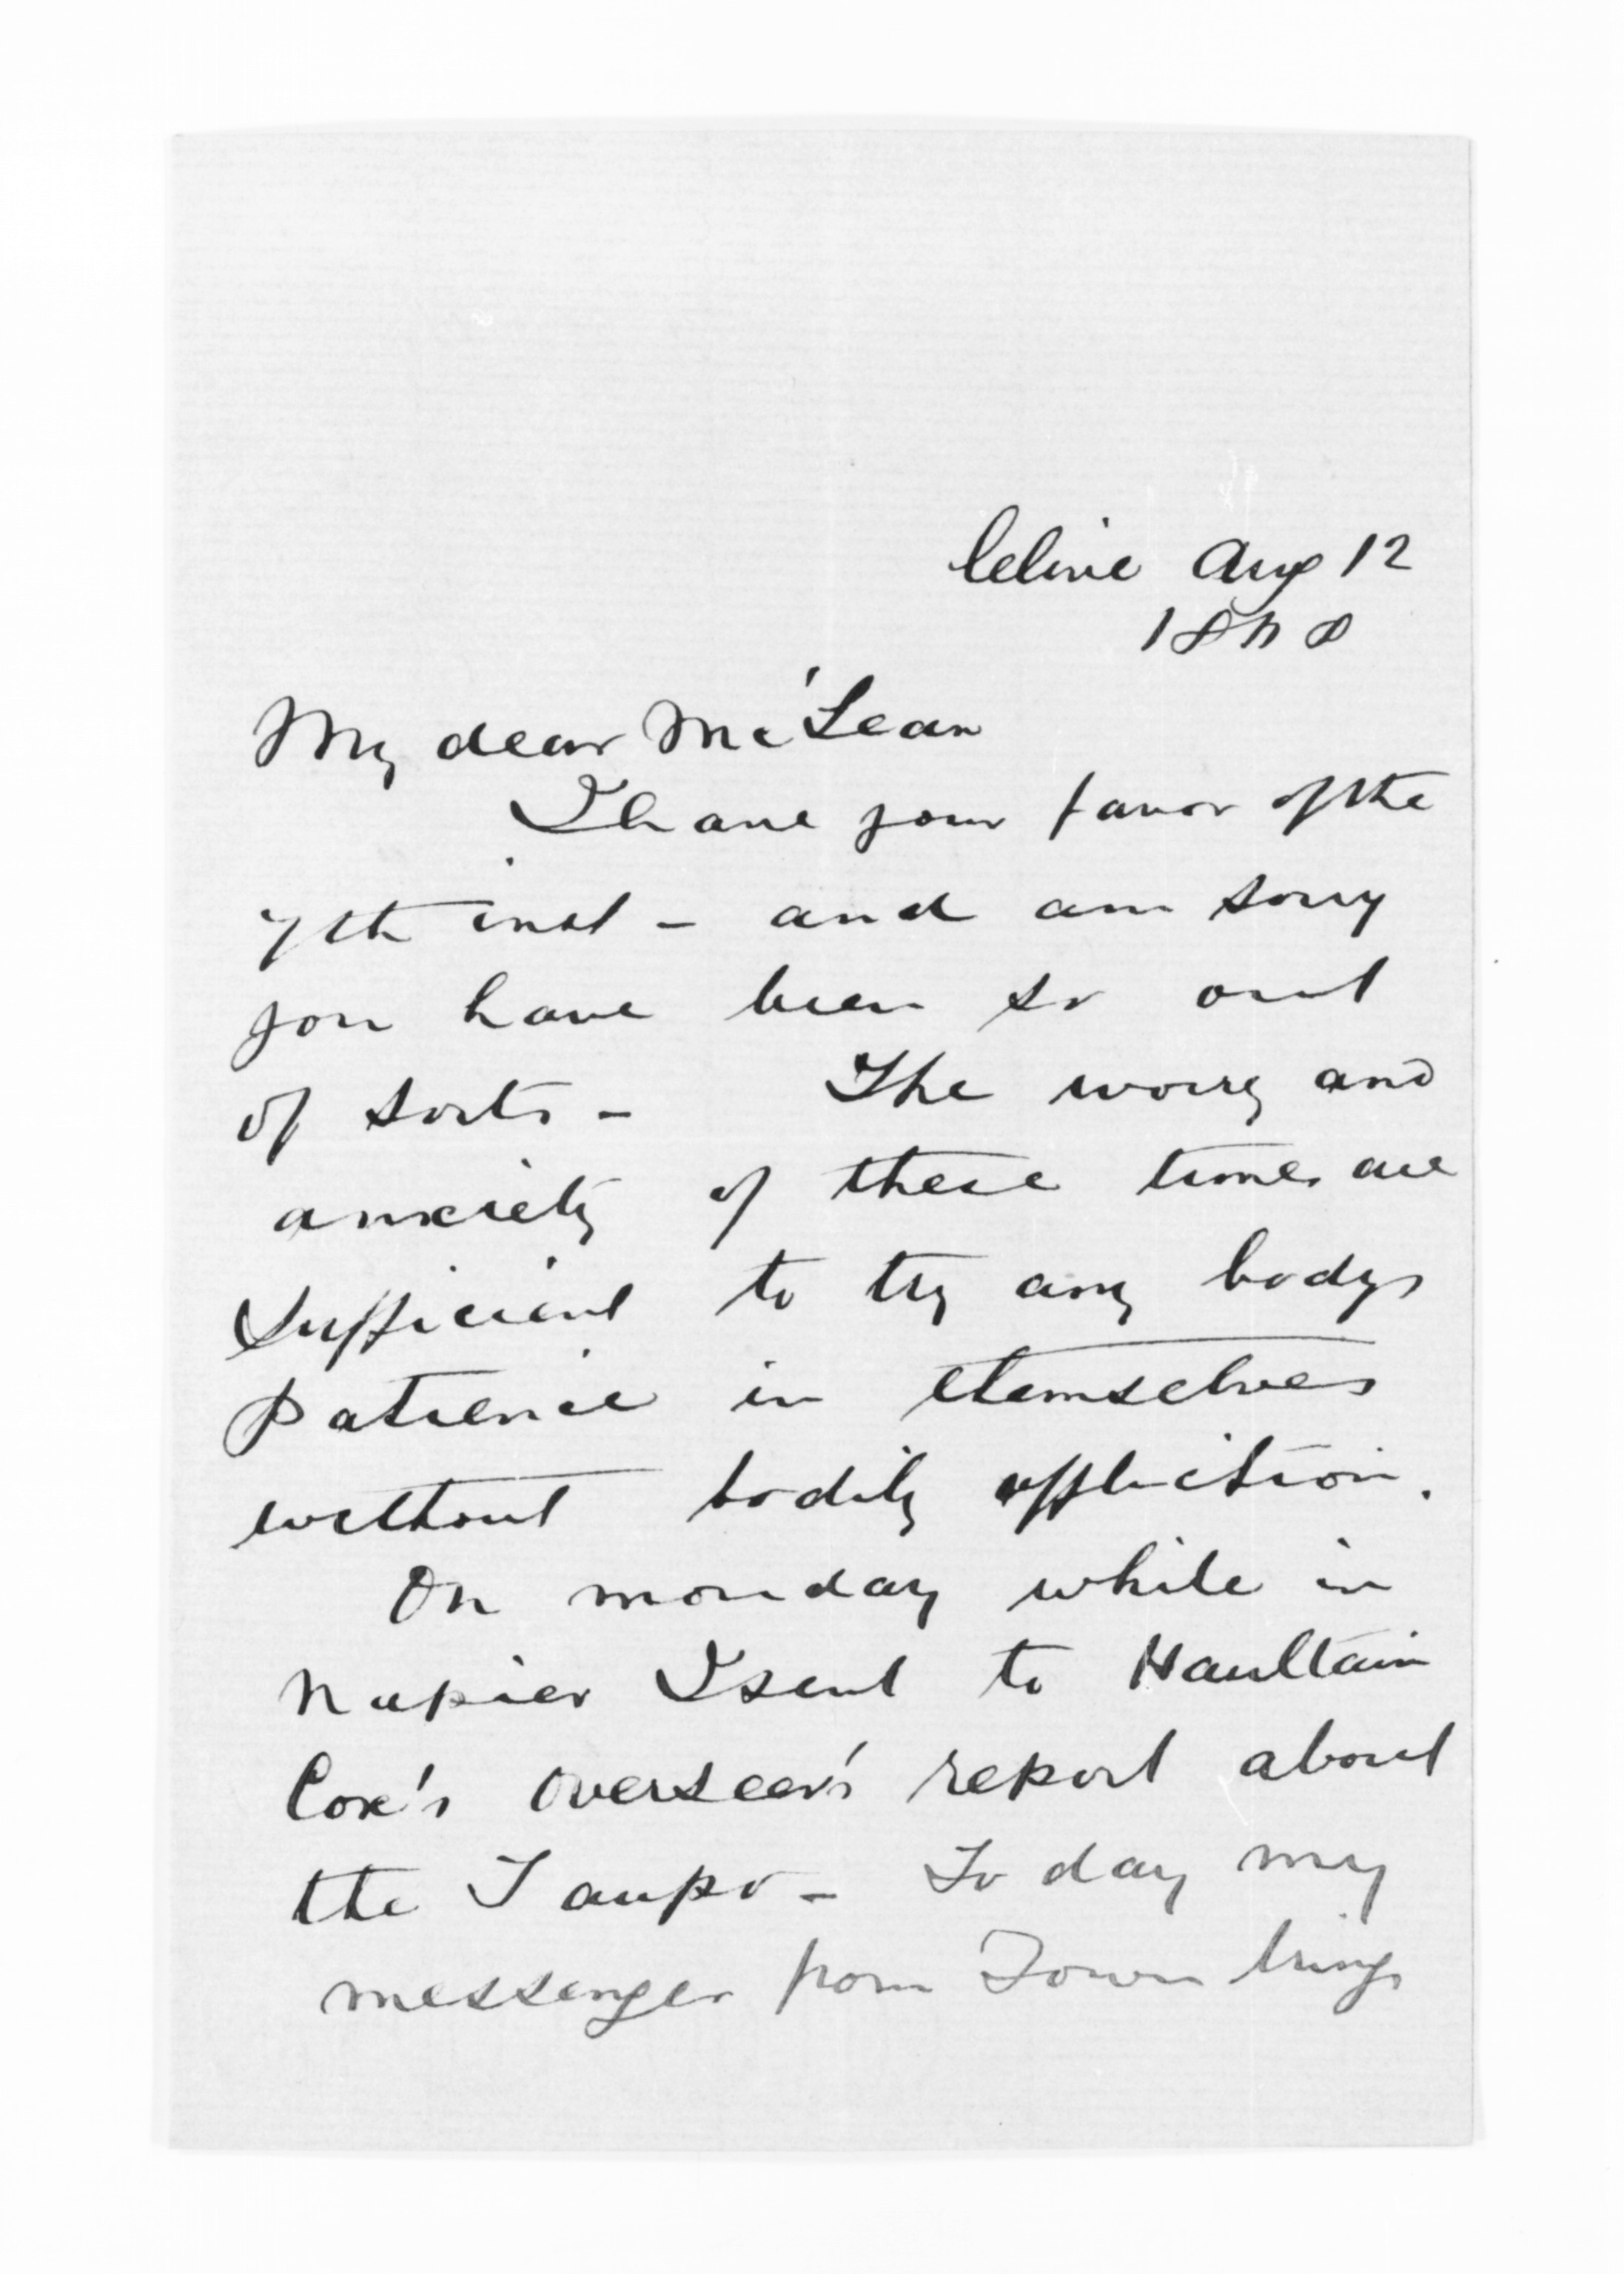 Clive Aug 12
1868
My dear McLean
I have your favor of the
7th inst - and am sorry
you have been so out
of sorts - The worry and
anxiety of these times are
sufficient to try any bodys
patience in themselves
without bodily affliction.
On monday while in
Napier I sent to Haultain
Cox's Overseer's report about
the Taupo - To day my
messenger from Town brings